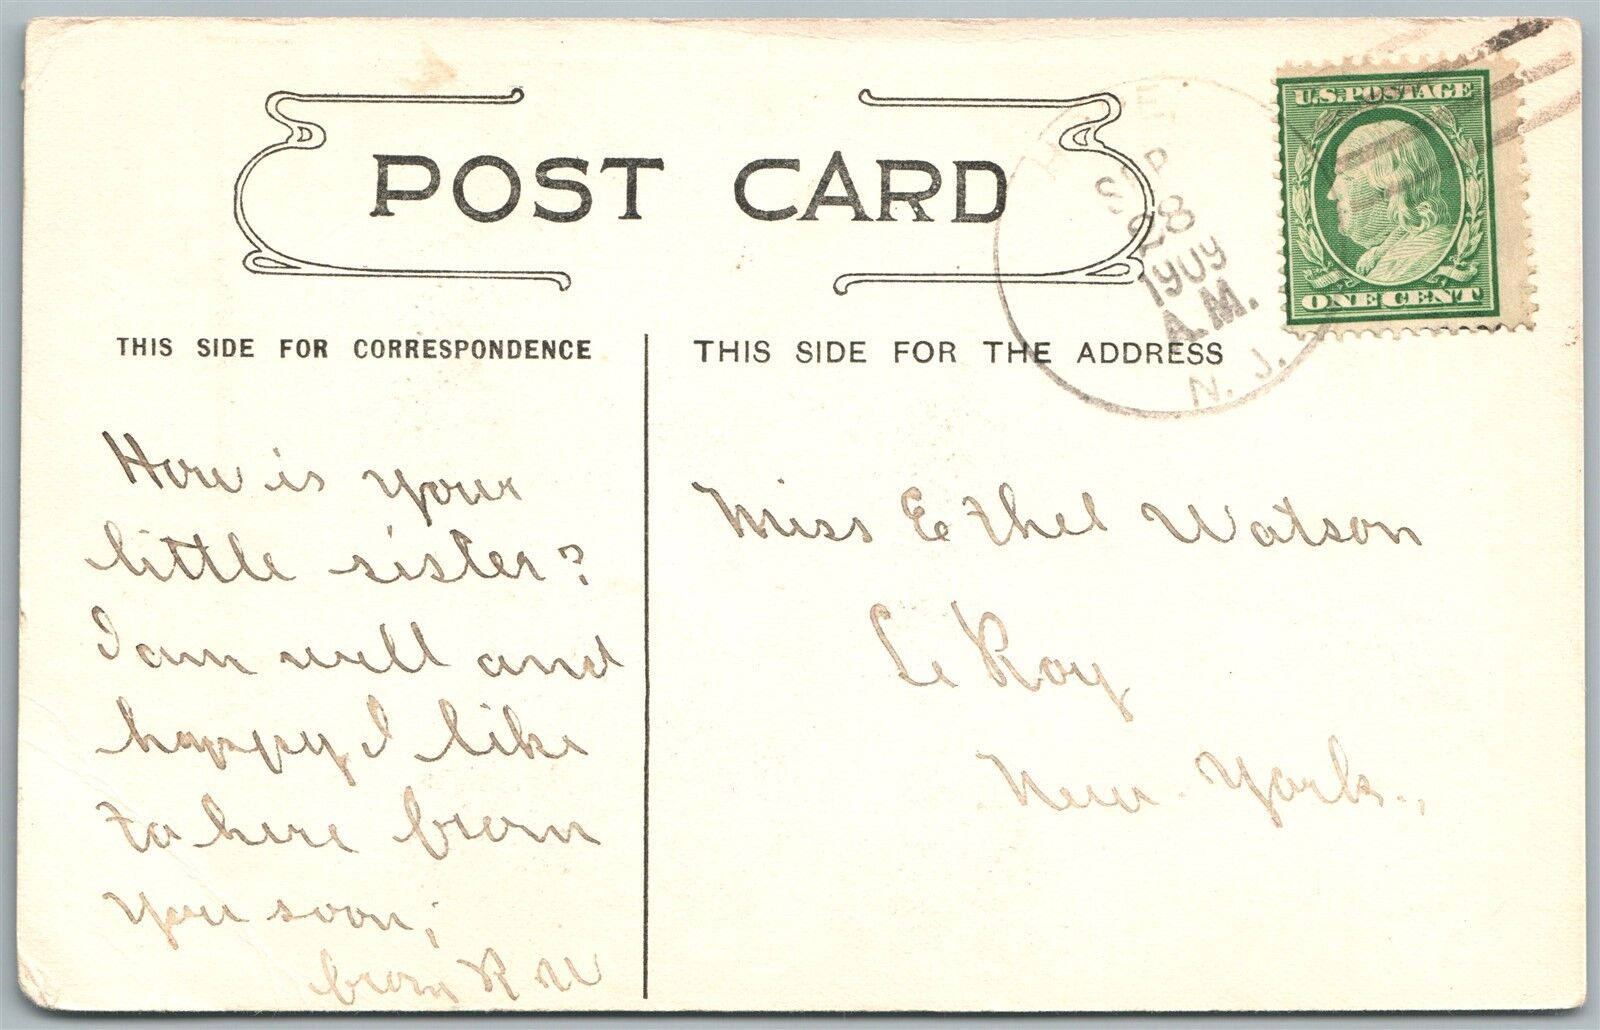 POST CARD
THIS SIDE FOR CORRESPONDENCE
THIS SIDE FOR THE ADDRESS
SEP
28
1909
A.M.
N. J.
U.S. POSTAGE
ONE CENT
How is your
little sister?
I am well and
happy I like
to here from
you soon,
from R W
Miss Ethel Watson
Le Roy
New York.,